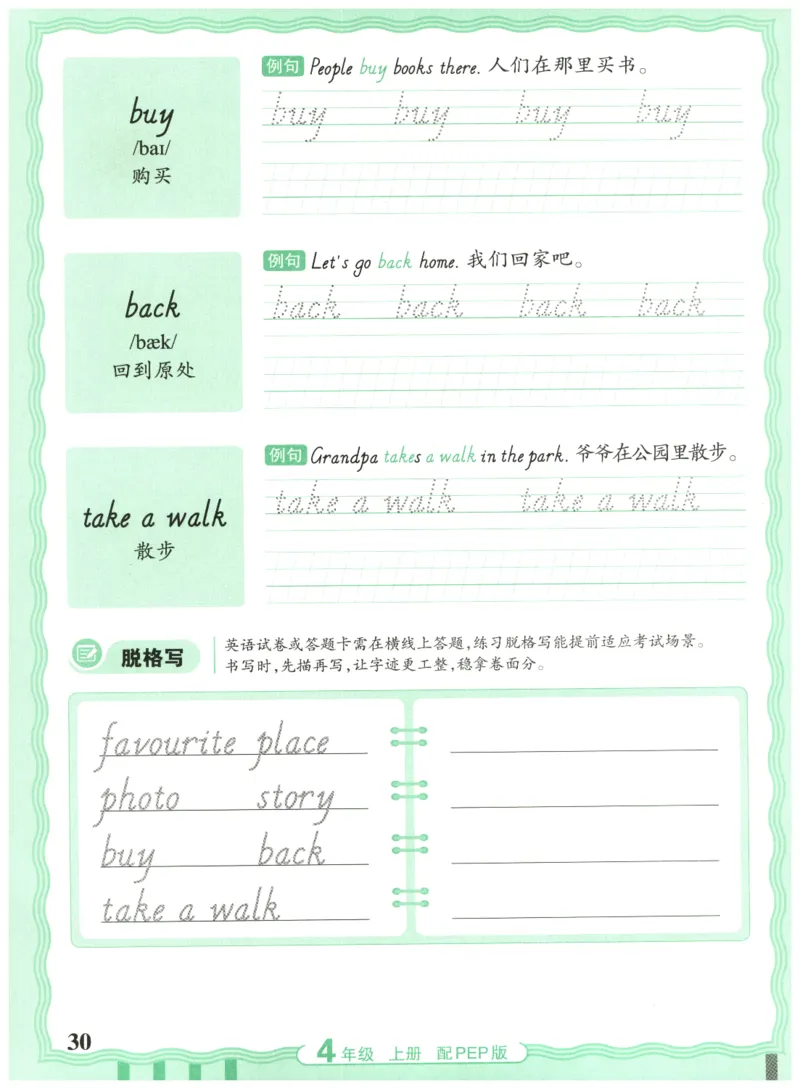 例句 People buy books there. 人们在那里买书。
buy
/baɪ/
购买
buy buy buy buy
例句 Let's go back home. 我们回家吧。
back
/bæk/
回到原处
back back back back
例句 Grandpa takes a walk in the park. 爷爷在公园里散步。
take a walk
散步
take a walk take a walk
脱格写
英语试卷或答题卡需在横线上答题,练习脱格写能提前适应考试场景。
书写时,先描再写,让字迹更工整,稳拿卷面分。
favourite place
photo story
buy back
take a walk
30
4年级 上册 配PEP版